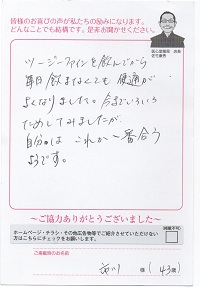 皆様のお喜びの声が私たちの励みになります。
どんなことでも結構です。是非お聞かせください。
ツージーファインを飲んでから
毎日飲まなくても 便通が
よくなりました。今までいろいろ
ためしてみましたが、
自分には これが一番合う
ようです。
〜ご協力ありがとうございました〜
ホームページ・チラシ・その他広告物等でご紹介させていただけない
方はこちらにチェックをお願いします。
(掲載不可)
ご掲載用のお名前
市川 様(43歳)